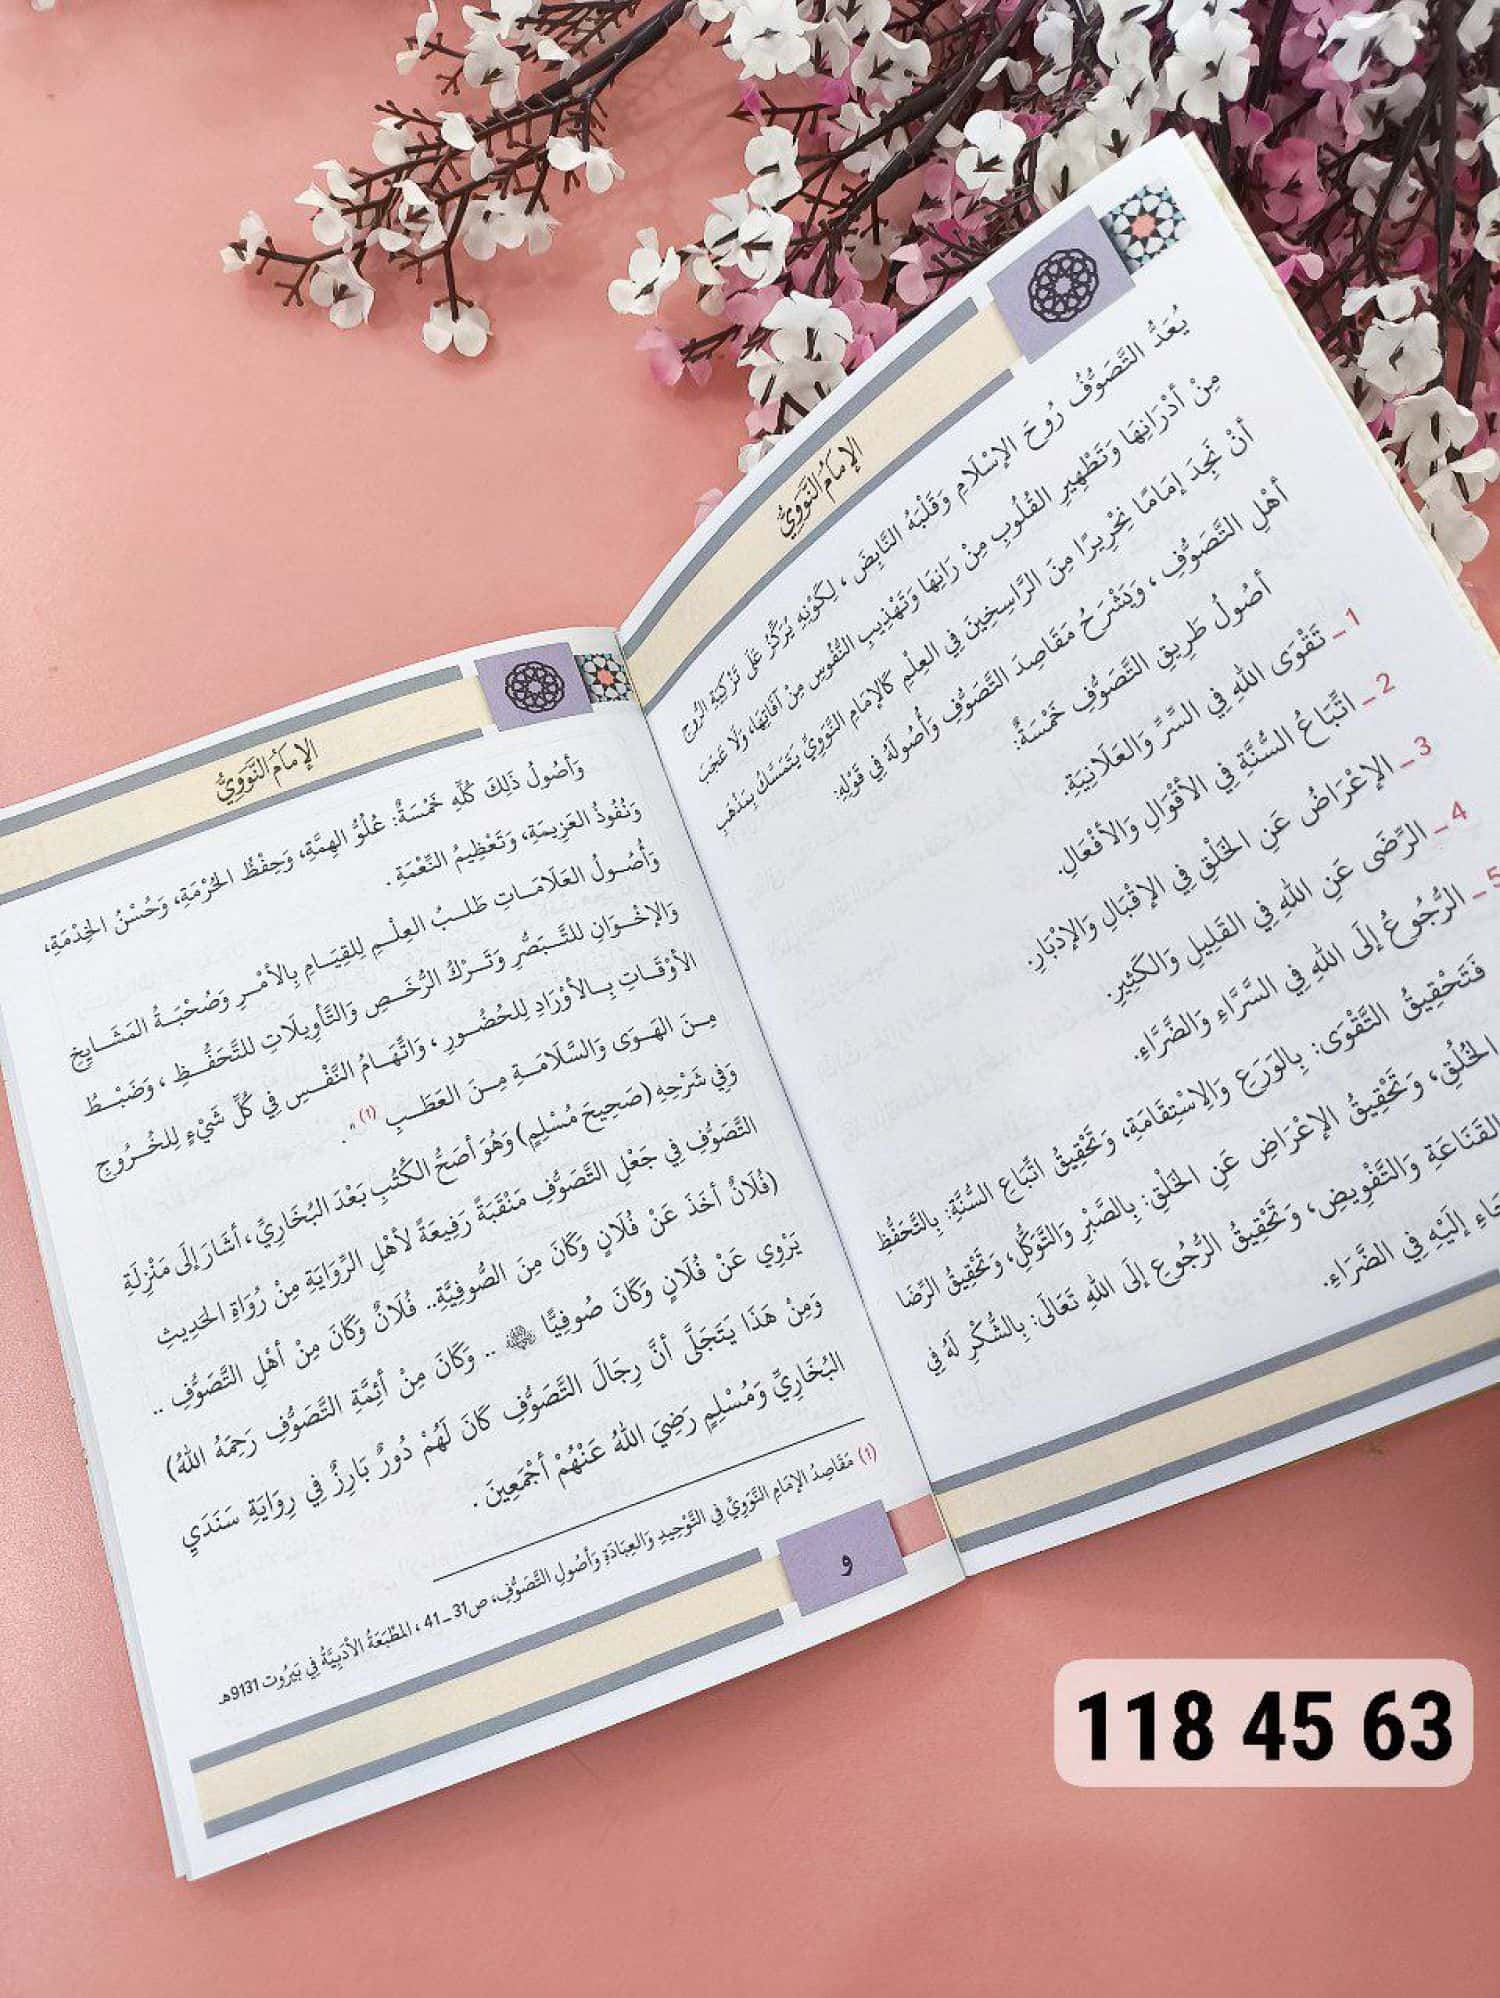 الإِمَامُ النَّوَوِيُّ
يُعَدُّ التَّصَوُّفُ رُوحَ الإِسْلَامِ وَقَلْبَهُ النَّابِضَ، لِكَوْنِهِ يُرَكِّزُ عَلَى تَزْكِيَةِ الرُّوحِ
مِنْ أَدْرَانِهَا وَتَطْهِيرِ القُلُوبِ مِنْ رَانِهَا وَتَهْذِيبِ النُّفُوسِ مِنْ آفَاتِهَا، وَلَا عَجَبَ
أَنْ نَجِدَ إِمَامًا نِحْرِيرًا مِنَ الرَّاسِخِينَ فِي العِلْمِ كَالإِمَامِ النَّوَوِيِّ يَتَمَسَّكُ بِمَذْهَبِ
أَهْلِ التَّصَوُّفِ، وَيَشْرَحُ مَقَاصِدَ التَّصَوُّفِ وَأُصُولَهُ فِي قَوْلِهِ:
أُصُولُ طَرِيقِ التَّصَوُّفِ خَمْسَةٌ:
1 ـ تَقْوَى اللهِ فِي السِّرِّ وَالعَلَانِيَةِ.
2 ـ اتِّبَاعُ السُّنَّةِ فِي الأَقْوَالِ وَالأَفْعَالِ.
3 ـ الإِعْرَاضُ عَنِ الخَلْقِ فِي الإِقْبَالِ وَالإِدْبَارِ.
4 ـ الرِّضَى عَنِ اللهِ فِي القَلِيلِ وَالكَثِيرِ.
5 ـ الرُّجُوعُ إِلَى اللهِ فِي السَّرَّاءِ وَالضَّرَّاءِ.
فَتَحْقِيقُ التَّقْوَى: بِالوَرَعِ وَالِاسْتِقَامَةِ، وَتَحْقِيقُ اتِّبَاعِ السُّنَّةِ: بِالتَّحَفُّظِ
الخُلُقِ، وَتَحْقِيقُ الإِعْرَاضِ عَنِ الخَلْقِ: بِالصَّبْرِ وَالتَّوَكُّلِ، وَتَحْقِيقُ الرِّضَا
القَنَاعَةِ وَالتَّفْوِيضِ، وَتَحْقِيقُ الرُّجُوعِ إِلَى اللهِ تَعَالَى: بِالشُّكْرِ لَهُ فِي
إِلَيْهِ فِي الضَّرَاءِ.
الإِمَامُ النَّوَوِيُّ
وَأُصُولُ ذَلِكَ كُلِّهِ خَمْسَةٌ: عُلُوُّ الهِمَّةِ، وَحِفْظُ الحُرْمَةِ، وَحُسْنُ الخِدْمَةِ،
وَنُفُوذُ العَزِيمَةِ، وَتَعْظِيمُ النِّعْمَةِ.
وَأُصُولُ العَلَامَاتِ طَلَبُ العِلْمِ لِلقِيَامِ بِالأَمْرِ وَصُحْبَةُ المَشَايِخِ
وَالإِخْوَانِ لِلتَّبَصُّرِ وَتَرْكُ الرُّخَصِ وَالتَّأوِيلَاتِ لِلتَّحَفُّظِ، وَضَبْطُ
الأَوْقَاتِ بِالأَوْرَادِ لِلحُضُورِ، وَاتِّهَامُ النَّفْسِ فِي كُلِّ شَيْءٍ لِلخُرُوجِ
مِنَ الهَوَى وَالسَّلَامَةِ مِنَ العَطَبِ (1)".
وَفِي شَرْحِهِ (صَحِيحَ مُسْلِمٍ) وَهُوَ أَصَحُّ الكُتُبِ بَعْدَ البُخَارِيِّ، أَشَارَ إِلَى مَنْزِلَةِ
التَّصَوُّفِ فِي جَعْلِ التَّصَوُّفِ مَنْقَبَةً رَفِيعَةً لأَهْلِ الرِّوَايَةِ مِنْ رُوَاةِ الحَدِيثِ
(فُلَانٌ أَخَذَ عَنْ فُلَانٍ وَكَانَ مِنَ الصُّوفِيَّةِ.. فُلَانٌ وَكَانَ مِنْ أَهْلِ التَّصَوُّفِ ..
يَرْوِي عَنْ فُلَانٍ وَكَانَ صُوفِيًّا .. وَكَانَ مِنْ أَئِمَّةِ التَّصَوُّفِ رَحِمَهُ اللهُ)
وَمِنْ هَذَا يَتَجَلَّى أَنَّ رِجَالَ التَّصَوُّفِ كَانَ لَهُمْ دُورٌ بَارِزٌ فِي رِوَايَةِ سَنَدَيِ
البُخَارِيِّ وَمُسْلِمٍ رَضِيَ اللهُ عَنْهُمْ أَجْمَعِينَ.
(1) مَقَاصِدُ الإِمَامِ النَّوَوِيِّ فِي التَّوْحِيدِ وَالعِبَادَةِ وَأُصُولِ التَّصَوُّفِ، ص31 ـ 41، المَطْبَعَةُ الأَدَبِيَّةُ فِي بَيْرُوت 9131هـ
و
118 45 63